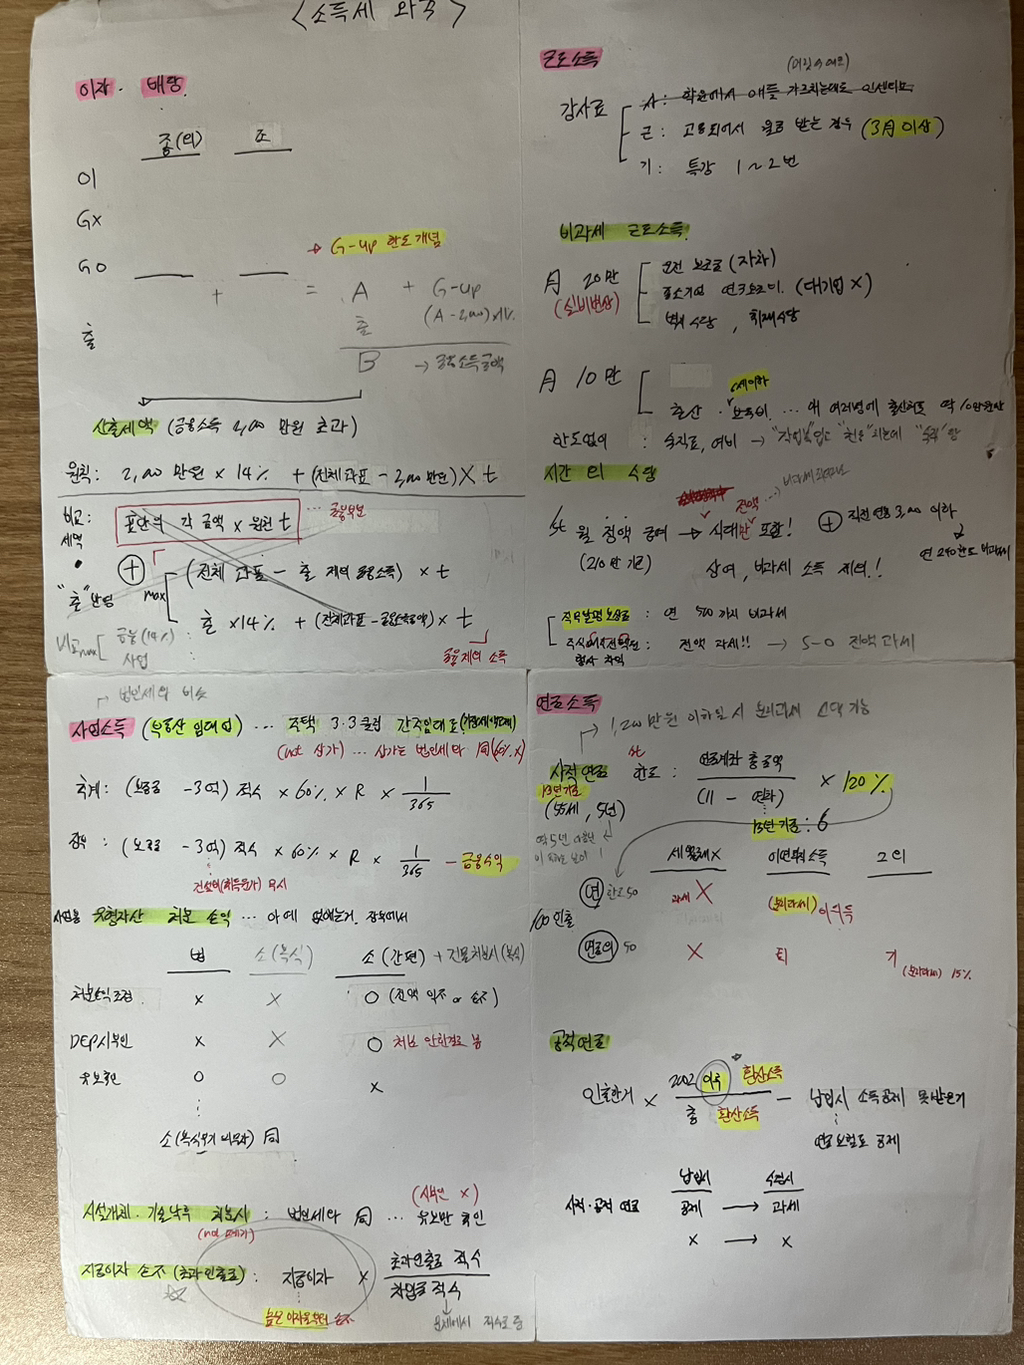 <소득세 와꾸>
이자·배당
종(의) 조
이
GX
GO
+ =
출
→ G-up 한도개념
A + G-up
출 (A - 2,000)×10%
B → 금융소득금액
산출세액 (금융소득 2,000 만원 초과)
원칙: 2,000 만원 × 14% + (전체과표 - 2,000만원) × t
비교:
세액
각 금액 × 원천 t … 금융부분
⊕ (전체 과표 - 출 제외 금융소득) × t
"출" 난입
max
출 × 14% + (전체과표 - 금융소득금액) × t
비교 max 금융(14%) :
사업 :
금융제외 소득
근로소득
(어린이 여오)
강사료
사: 학원에서 애들 가르치는데도 인센티브
근: 고용되어서 월급 받는 경우 (3月 이상)
기: 특강 1~2번
비과세 근로소득
月 20만
(실비변상)
운전 보조금 (자차)
중소기업 연구보조비. (대기업 X)
벽지수당, 취재수당
月 10만
6세이하
출산·보육비 …
한도없이 : 숙직료, 여비 →
시간 외 수당
전액 … 비과세
st 월 정액 급여 → 식대만 포함! ⊕ 직전 연봉 3,000 이하
(210만 기준) 상여, 비과세 소득 제외!!
연 240한도 비과세
직무발명보상금 : 연 500까지 비과세
주식매수선택권 : 전액 과세!! → S-O 전액과세
행사 차익
→ 법인세와 비슷
사업소득 (부동산 임대업) … 주택 3·3 클럽 간주임대료
(not 상가) … 상가는 법인세와 同(60% X)
추계: (보증금 - 3억) 적수 × 60% × R × 1/365
장부: (보증금 - 3억) 적수 × 60% × R × 1/365 - 금융수익
건설비(취득원가) 무시
사업용 유형자산 처분 손익 … 아예 없애는거. 장부에서
법 소(복식) 소(간편) + 건물처분시(복식)
처분손익조정 X X O (전액 익不 or 손不)
DEP시부인 X X O 처분 안한걸로 봄
유보추인 O O X
소(복식부기 의무자) 同
(시부인 X)
시설개체·기술낙후 처분시 : 법인세와 同 … 유보만 추인
(not 폐기)
지급이자 손不 (초과인출금) : 지급이자 × 초과인출금 적수 / 차입금 적수
높은 이자율부터 손不
문제에서 적수로 줌
연금소득
→ 1,200만원 이하일 시 분리과세 선택 가능
st
사적연금 한도 : 연금계좌 총금액 / (11 - 연차) × 120%
13년기준
(55세, 5년)
13년 기준 : 6
세액공제X 이연퇴직소득 그외
연 한도 50 과세 X (분리과세) 이연퇴직
100 인출
연금외 50 X 퇴 기 (분리과세) 15%
공적연금
인출한거 × 2002 이후 환산소득 / 총 환산소득 - 납입시 소득공제 못받은거
연금보험료 공제
납입시 수령시
사적·공적 연금 공제 → 과세
X → X